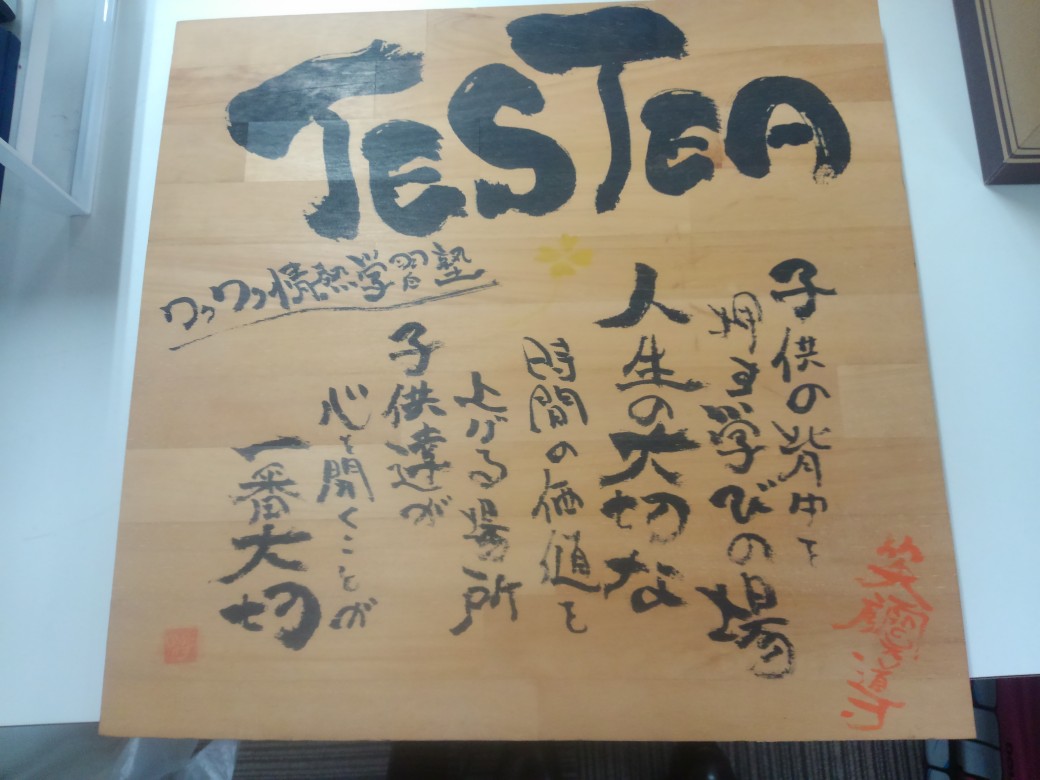 TESTEA
ワクワク情熱学習塾
子供の背中を
押す学びの場
人生の大切な
時間の価値を
上げる場所
子供達が
心を開くことが
一番大切